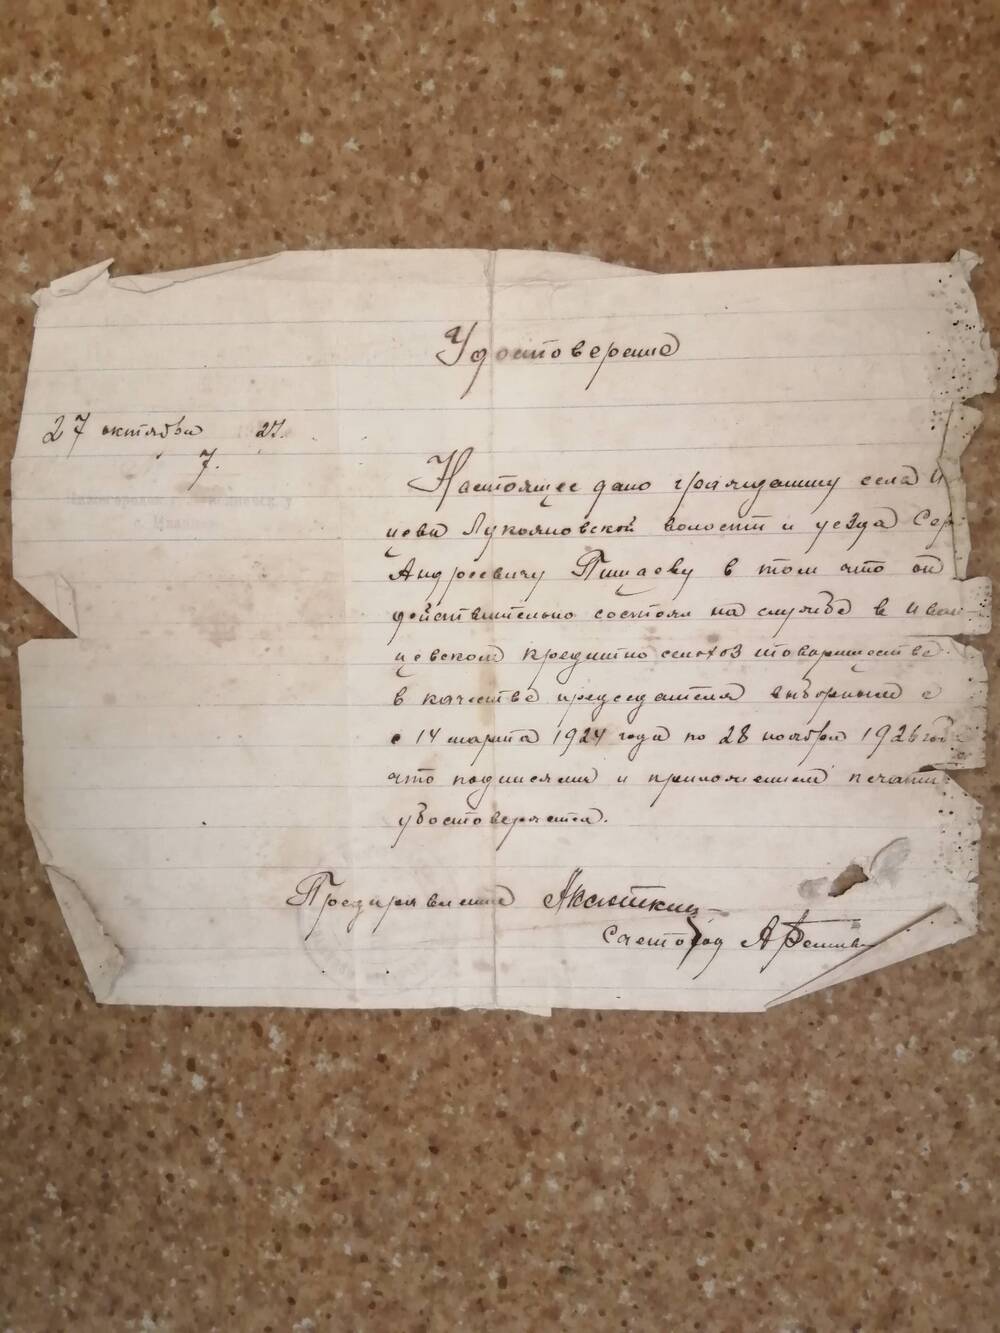 Удостоверение
27 октября 27.
7.
Настоящее дано гражданину села И
цева Лукояновской волости и уезда Сер
Андреевичу Пищаеву в том что он
действительно состоял на службе в Иван
цевском кредитно сельхоз товариществе
в качестве председателя выборным с
с 14 марта 1924 года по 28 ноября 1926 года
что подписями и приложением печати
удостоверяется.
Предправления Аксюткин
Счетовод